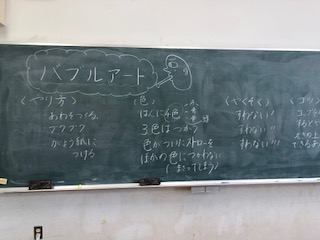 バブルアート
〈やり方〉
あわをつくる。
ブクブク
がよう紙に
つける
〈色〉
はんに4色
3色はつかう
色がついたストローを
ほかの色につかわない
(まざってしまう)
〈やくそく〉
すわない!
すわない!!
すわない!!!